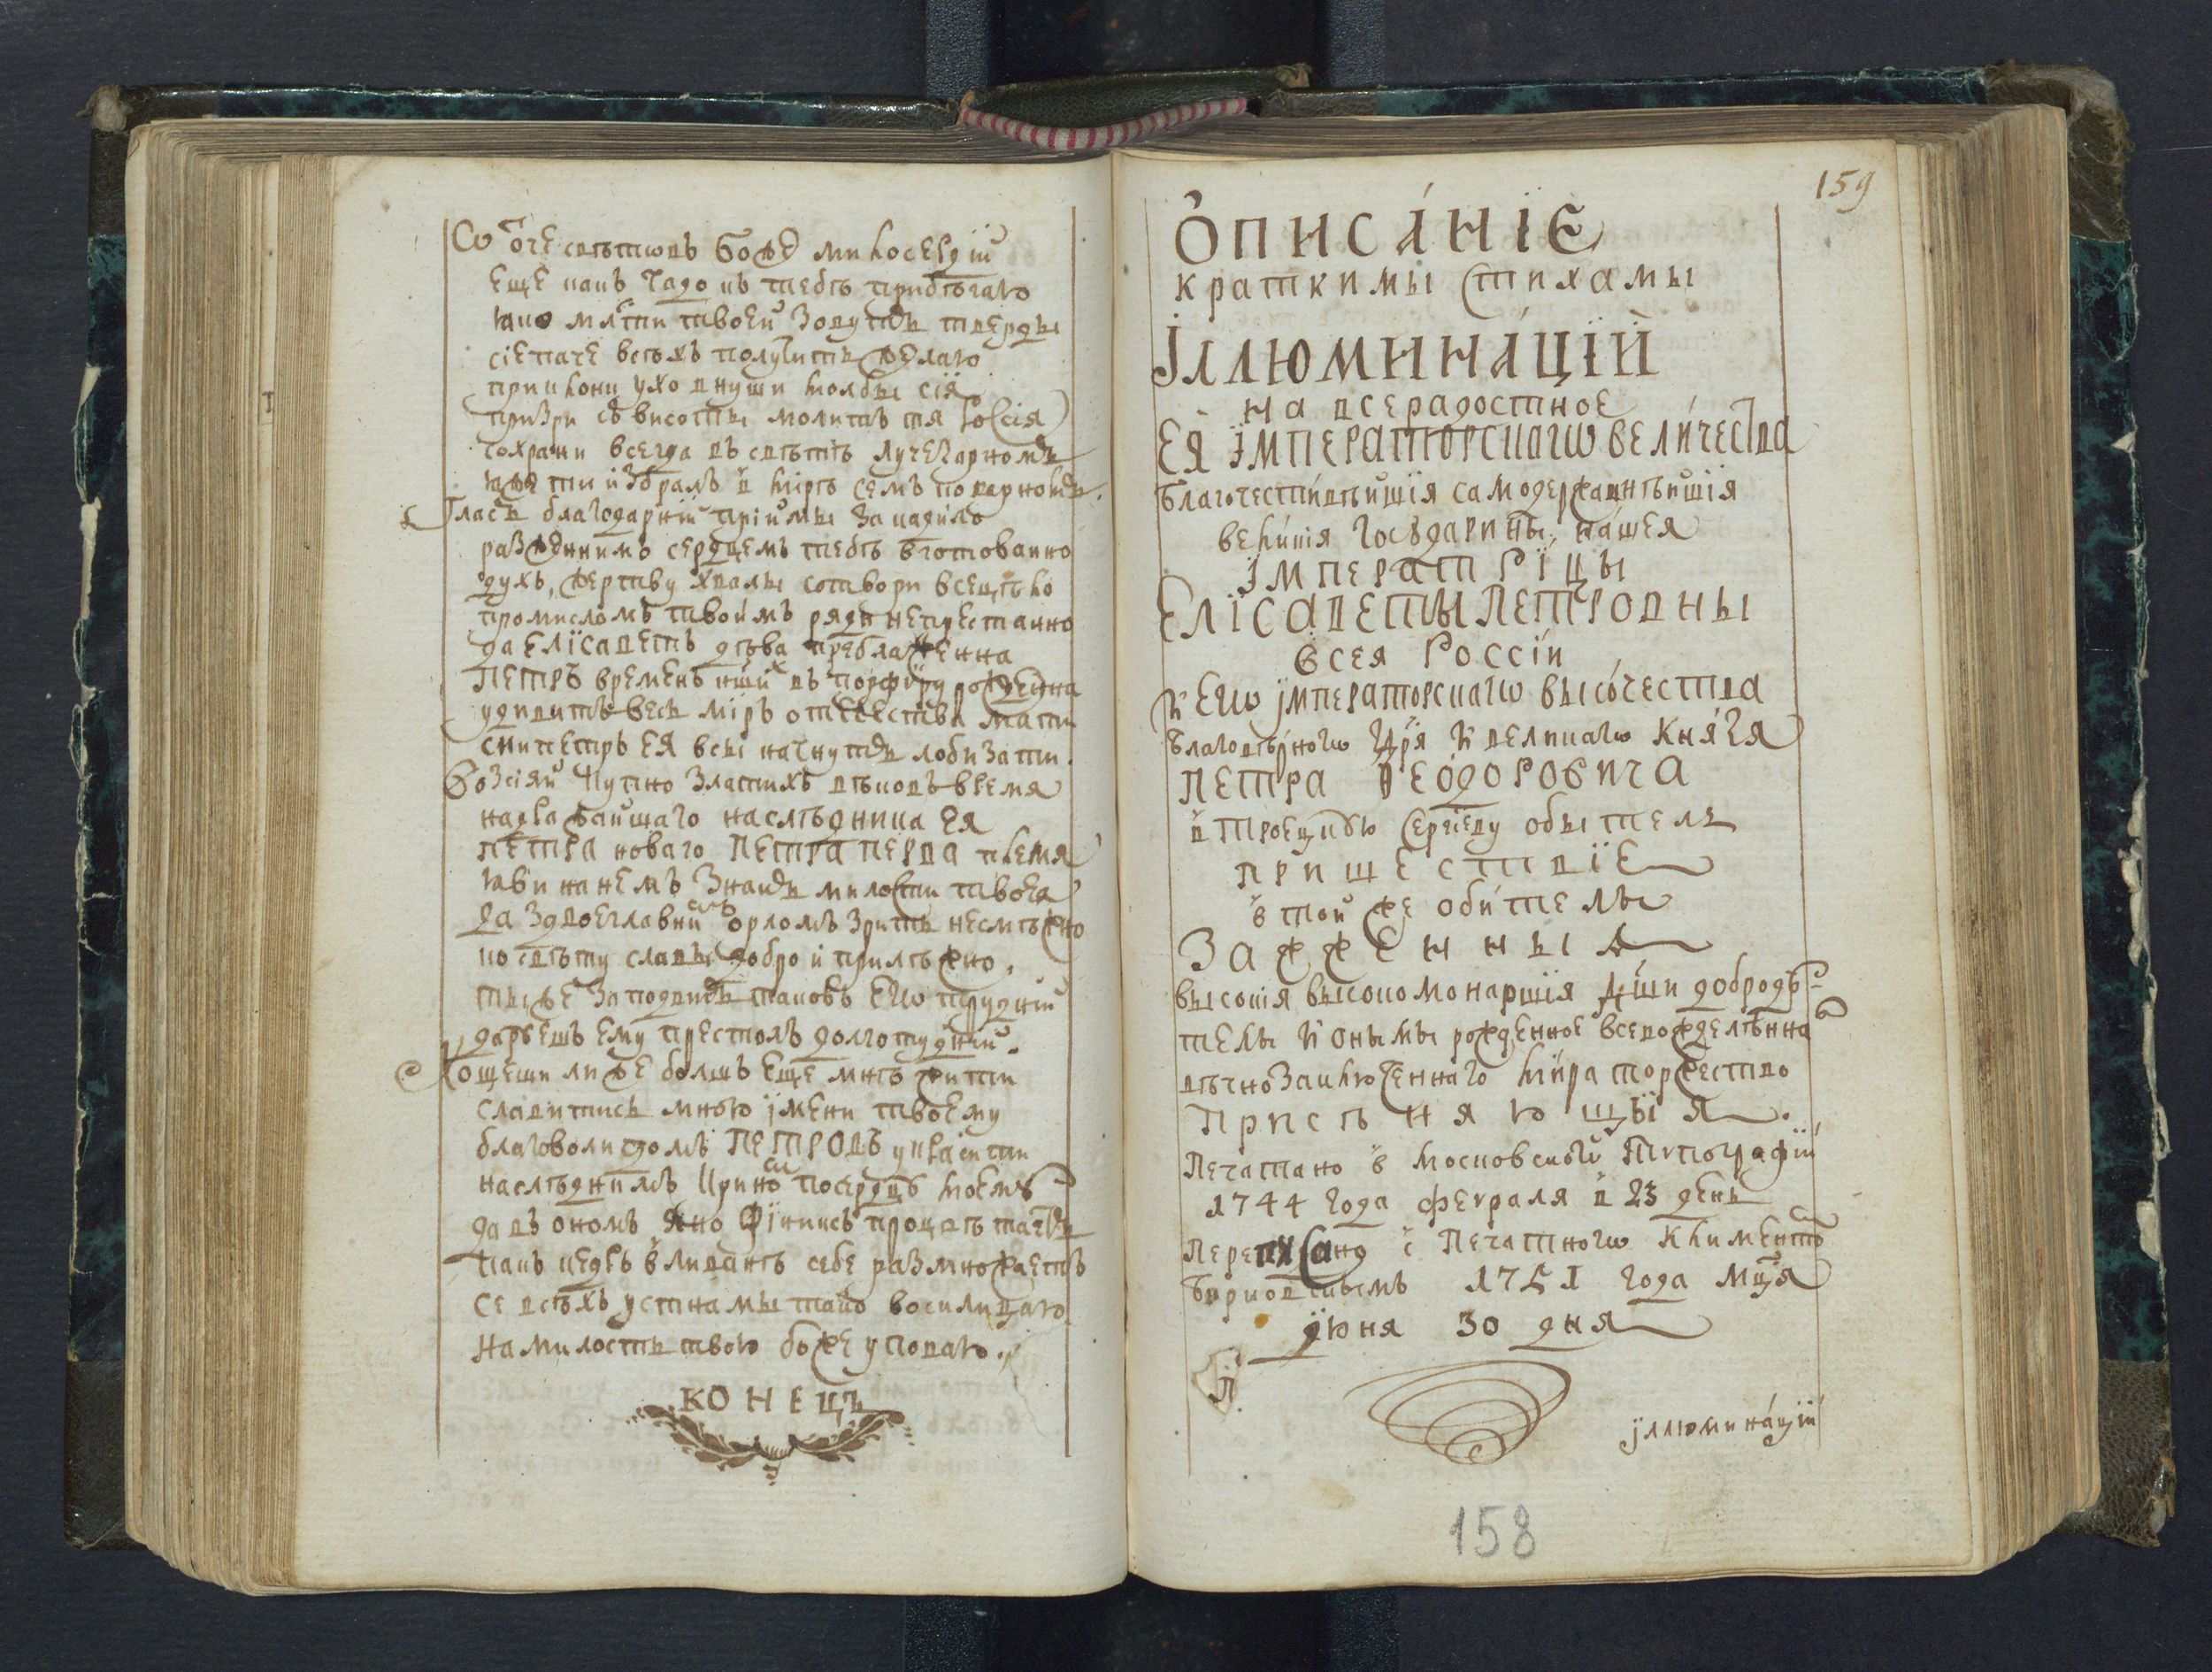 Ѡ оче свѣтовъ Боже милосердїй
Еще какъ чадо къ тебѣ прибѣгаю
Яко млсти твоей зовутъ тверды
сіе паче всѣхъ получить желаю
приклони ухо внуши молбы сія
призри съ висоты молитъ тя Россія
сохрани всегда въ свѣтѣ лучезарномъ
юже ти избралъ в мірѣ семъ
Гласъ благодарній пріймы за кадило
разженнимъ сердцемъ тебѣ вготованно
духъ, жертву хвалы сотвори всецѣло
промисломъ твоимъ ряди непрестанно
да Елїсаветъ дѣва преблаженна
ПЕТРЪ временъ нших въ порфиру рожденна
удивитъ весь міръ отечества мати
скипетръ ея всы начнутъ лобизати.
Возсіяй Чупно златихъ вѣковъ время
надражайшаго наслѣдника Ея
ПЕТРА новаго ПЕТРА ПЕРВА племя
яви на немъ знакъ милости твоея
Да здвоеглавнимъ орломъ зритъ несмѣжно
по свѣту славы добро й прилѣжно.
тыже за подвигъ таковъ Егѡ трудній
даруешъ ему престолъ долготудній.
Хощеши лиже болшъ Еще мнѣ жити
славитись мною їмени твоему
благоволи домъ ПЕТРОВЪ украсити
наслѣдникмъ посердцу моему
да въ ономъ яко Фінїкъ процвѣтаетъ
какъ кедръ в ливанѣ себе размножаетъ
Се всѣхъ устнамы тако восклицаю
На милость твою боже уповаю.
КОНЕЦЪ
159
ОПИСАНЇЕ
краткимы стихамы
ЇЛЛЮМИНАЦЇЙ
на всерадостное
ЕЯ ЇМПЕРАТОРСКАГѠ ВЕЛИЧЕСТВА
Благочестивѣйшія самодержавнѣйшія
великія Государины, нашея
ЇМПЕРАТРЇЦЫ
ЕЛЇСАВЕТЫ ПЕТРОВНЫ
всея РОССІИ
И ЕГѠ ЇМПЕРАТОРСКАГѠ ВЫСОЧЕСТВА
Благовѣрногѡ Цря И великагѡ КНЯЗЯ
ПЕТРА ѲЕОДОРОВИЧА
в Троецкую Сергїеву обытель
ПРИШЕСТВЇЕ
в той же обителы
ЗАЖЖЕННЫЯ
высокія высокомонаршія дши добродѣ-
телы И онымы рожденное всевожделѣнна
вѣчнозаключеннаго мира торжество
ПРИСѢНЯЮЩЫЯ.
Печатано в Московской Типографїй
1744 года февраля в 23 день
Переписано с Печатногѡ Климентомъ
1751 года Мця
Июня 30 дня
їллюминацїй
158